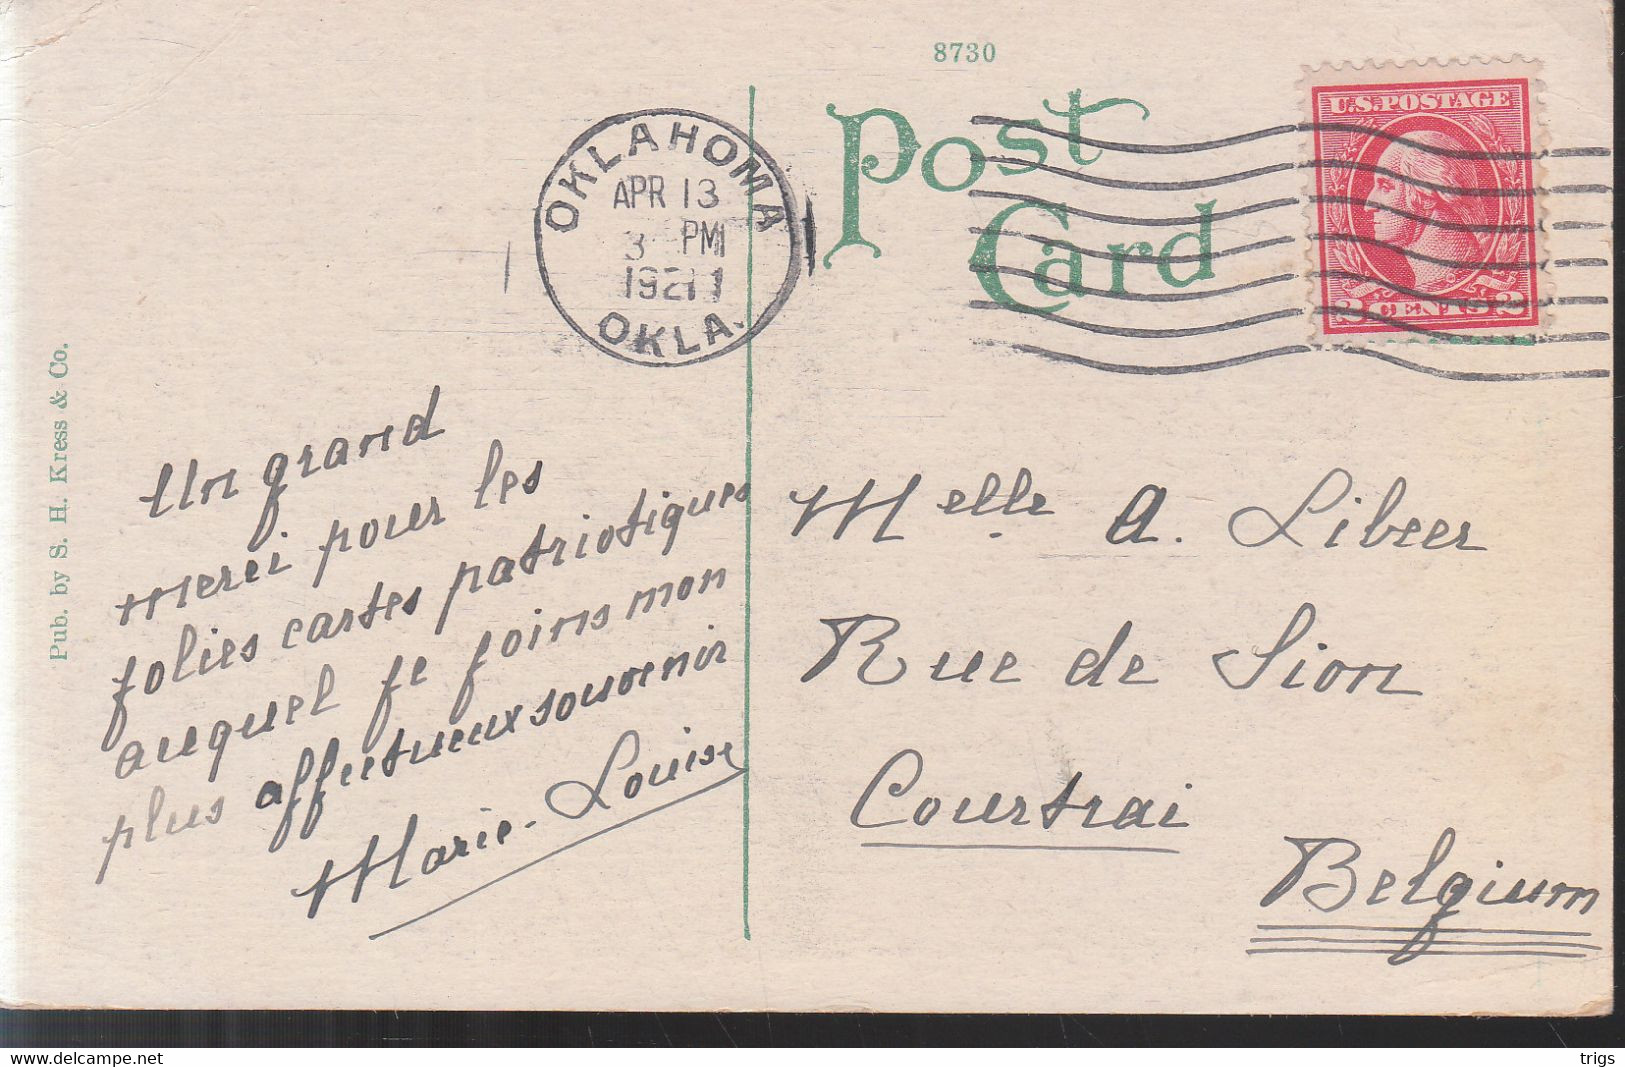 8730
Post
Card
U.S. POSTAGE
2 CENTS 2
OKLAHOMA
APR 13
3 PM
1921
OKLA.
Pub. by S. H. Kress & Co.
Un grand
merci pour les
jolies cartes patriotiques
auquel je joins mon
plus affectueux souvenir
Marie-Louise
Melle A. Libeer
Rue de Sion
Courtrai
Belgium
www.delcampe.net
trigs